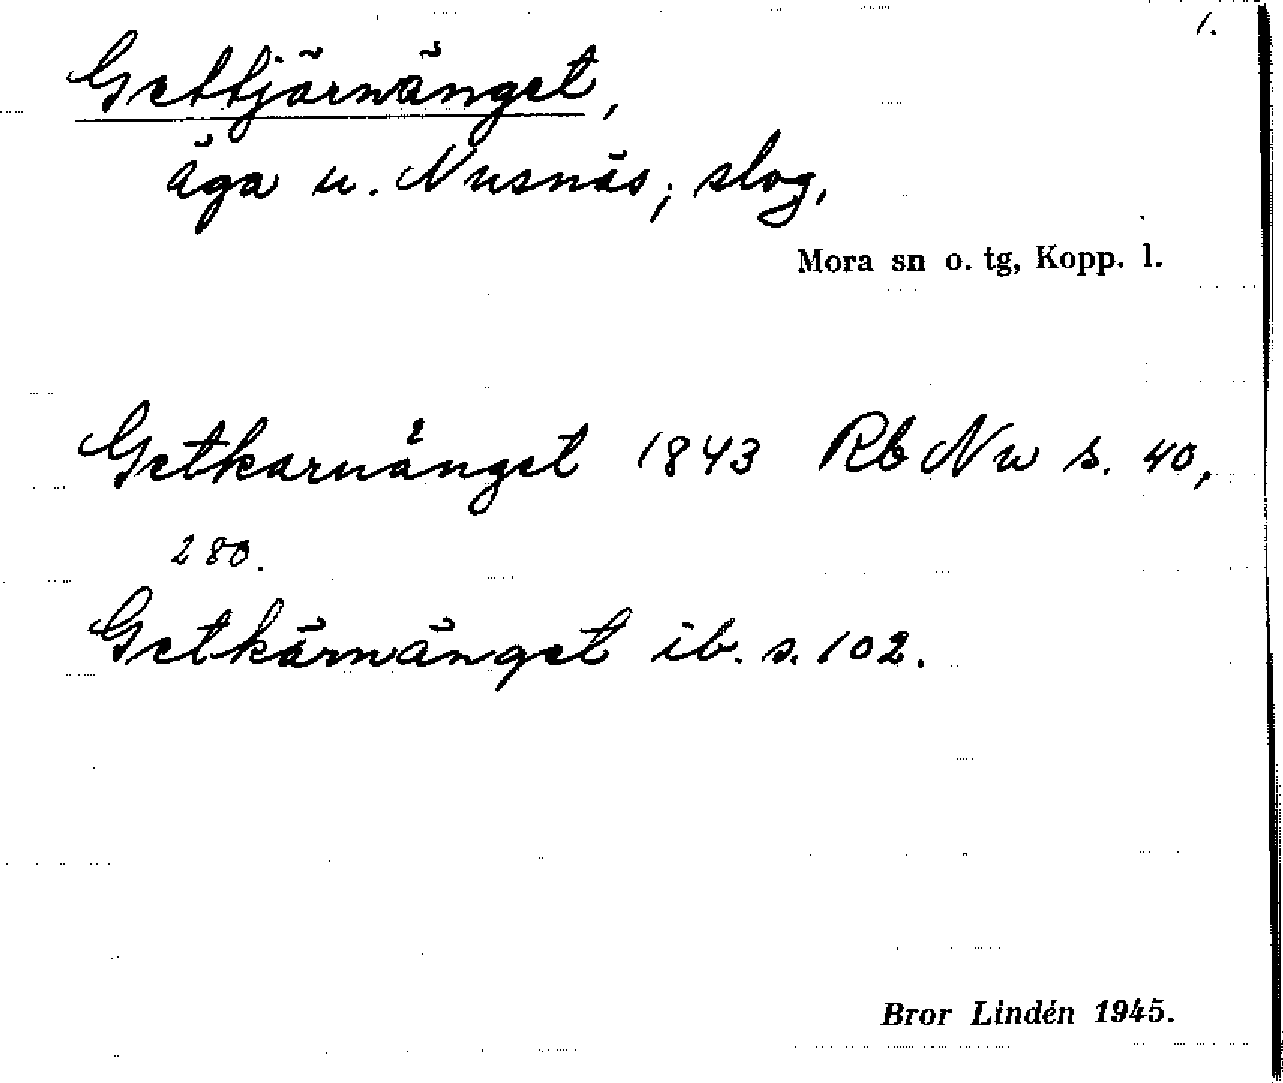 1.
Gettjärnänget,
äga u. Nusnäs, slog,
Mora sn o. tg, Kopp. l.
Getkarnånget 1843 Rb Nu s. 40,
280.
Getkärnänget ib. s. 102.
Bror Lindén 1945.